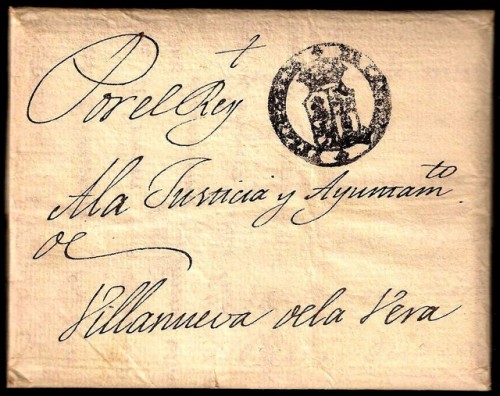 +
Por el Rey
A la Justicia y Ayuntam.to
de
Villanueva de la Vera